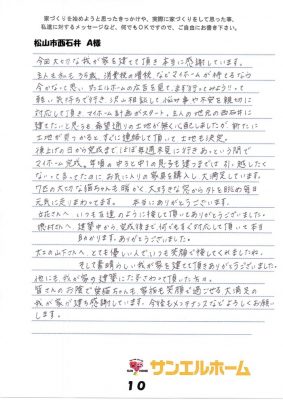 家づくりを始めようと思ったきっかけや、実際に家づくりをして思った事、
私達に対するメッセージなど、何でもＯＫですので、ご自由にお書き下さい。
松山市西石井 A様
今回大切な我が家を建てて頂き本当に感謝しています。
主人も私も35歳、消費税の増税などマイホームが持てるなら
今かなって思い、サンエルホームの広告を見て、まず行ってみよう!!って
軽い気持ちで行き、沢山相談して悩み事や不安を親切に
対応して頂きマイホーム計画がスタート。主人の地元の西石井に
建てたいと思っても希望通りの土地が無く心配しましたが新たに
土地が見つかると、すぐに連絡して頂いて土地も決定。
棟上げの日から完成までほぼ毎週末見に行きあっという間で
マイホーム完成。年頃の中3と中1の息子も建つまでは引っ越したく
ないって言ってたのにお気に入りの家具を購入し大満足しています。
7匹の大切な猫ちゃんも暖かく大好きな窓から外を眺め毎日
元気に走りまわってます。本当にありがとうございます。
さんへ いつも友達のように接して頂いてありがとうございました。
さんへ、建築中から完成後まで何でもすぐ対応して頂いて本当
助かります。ありがとうございました。
大工の山下さんへ とても優しい人でいつも笑顔で接してくれましたね。
そして素晴らしい我が家を建てて頂きありがとうございました。
他にも、我が家の建築にたずさわって頂いた方々。
皆さんのお陰で愛猫ちゃんも、家族も笑顔で過ごせる大満足の
我が家が建ち感謝しています。今後もメンテナンスなどよろしくお願い
します。
サンエルホーム
10